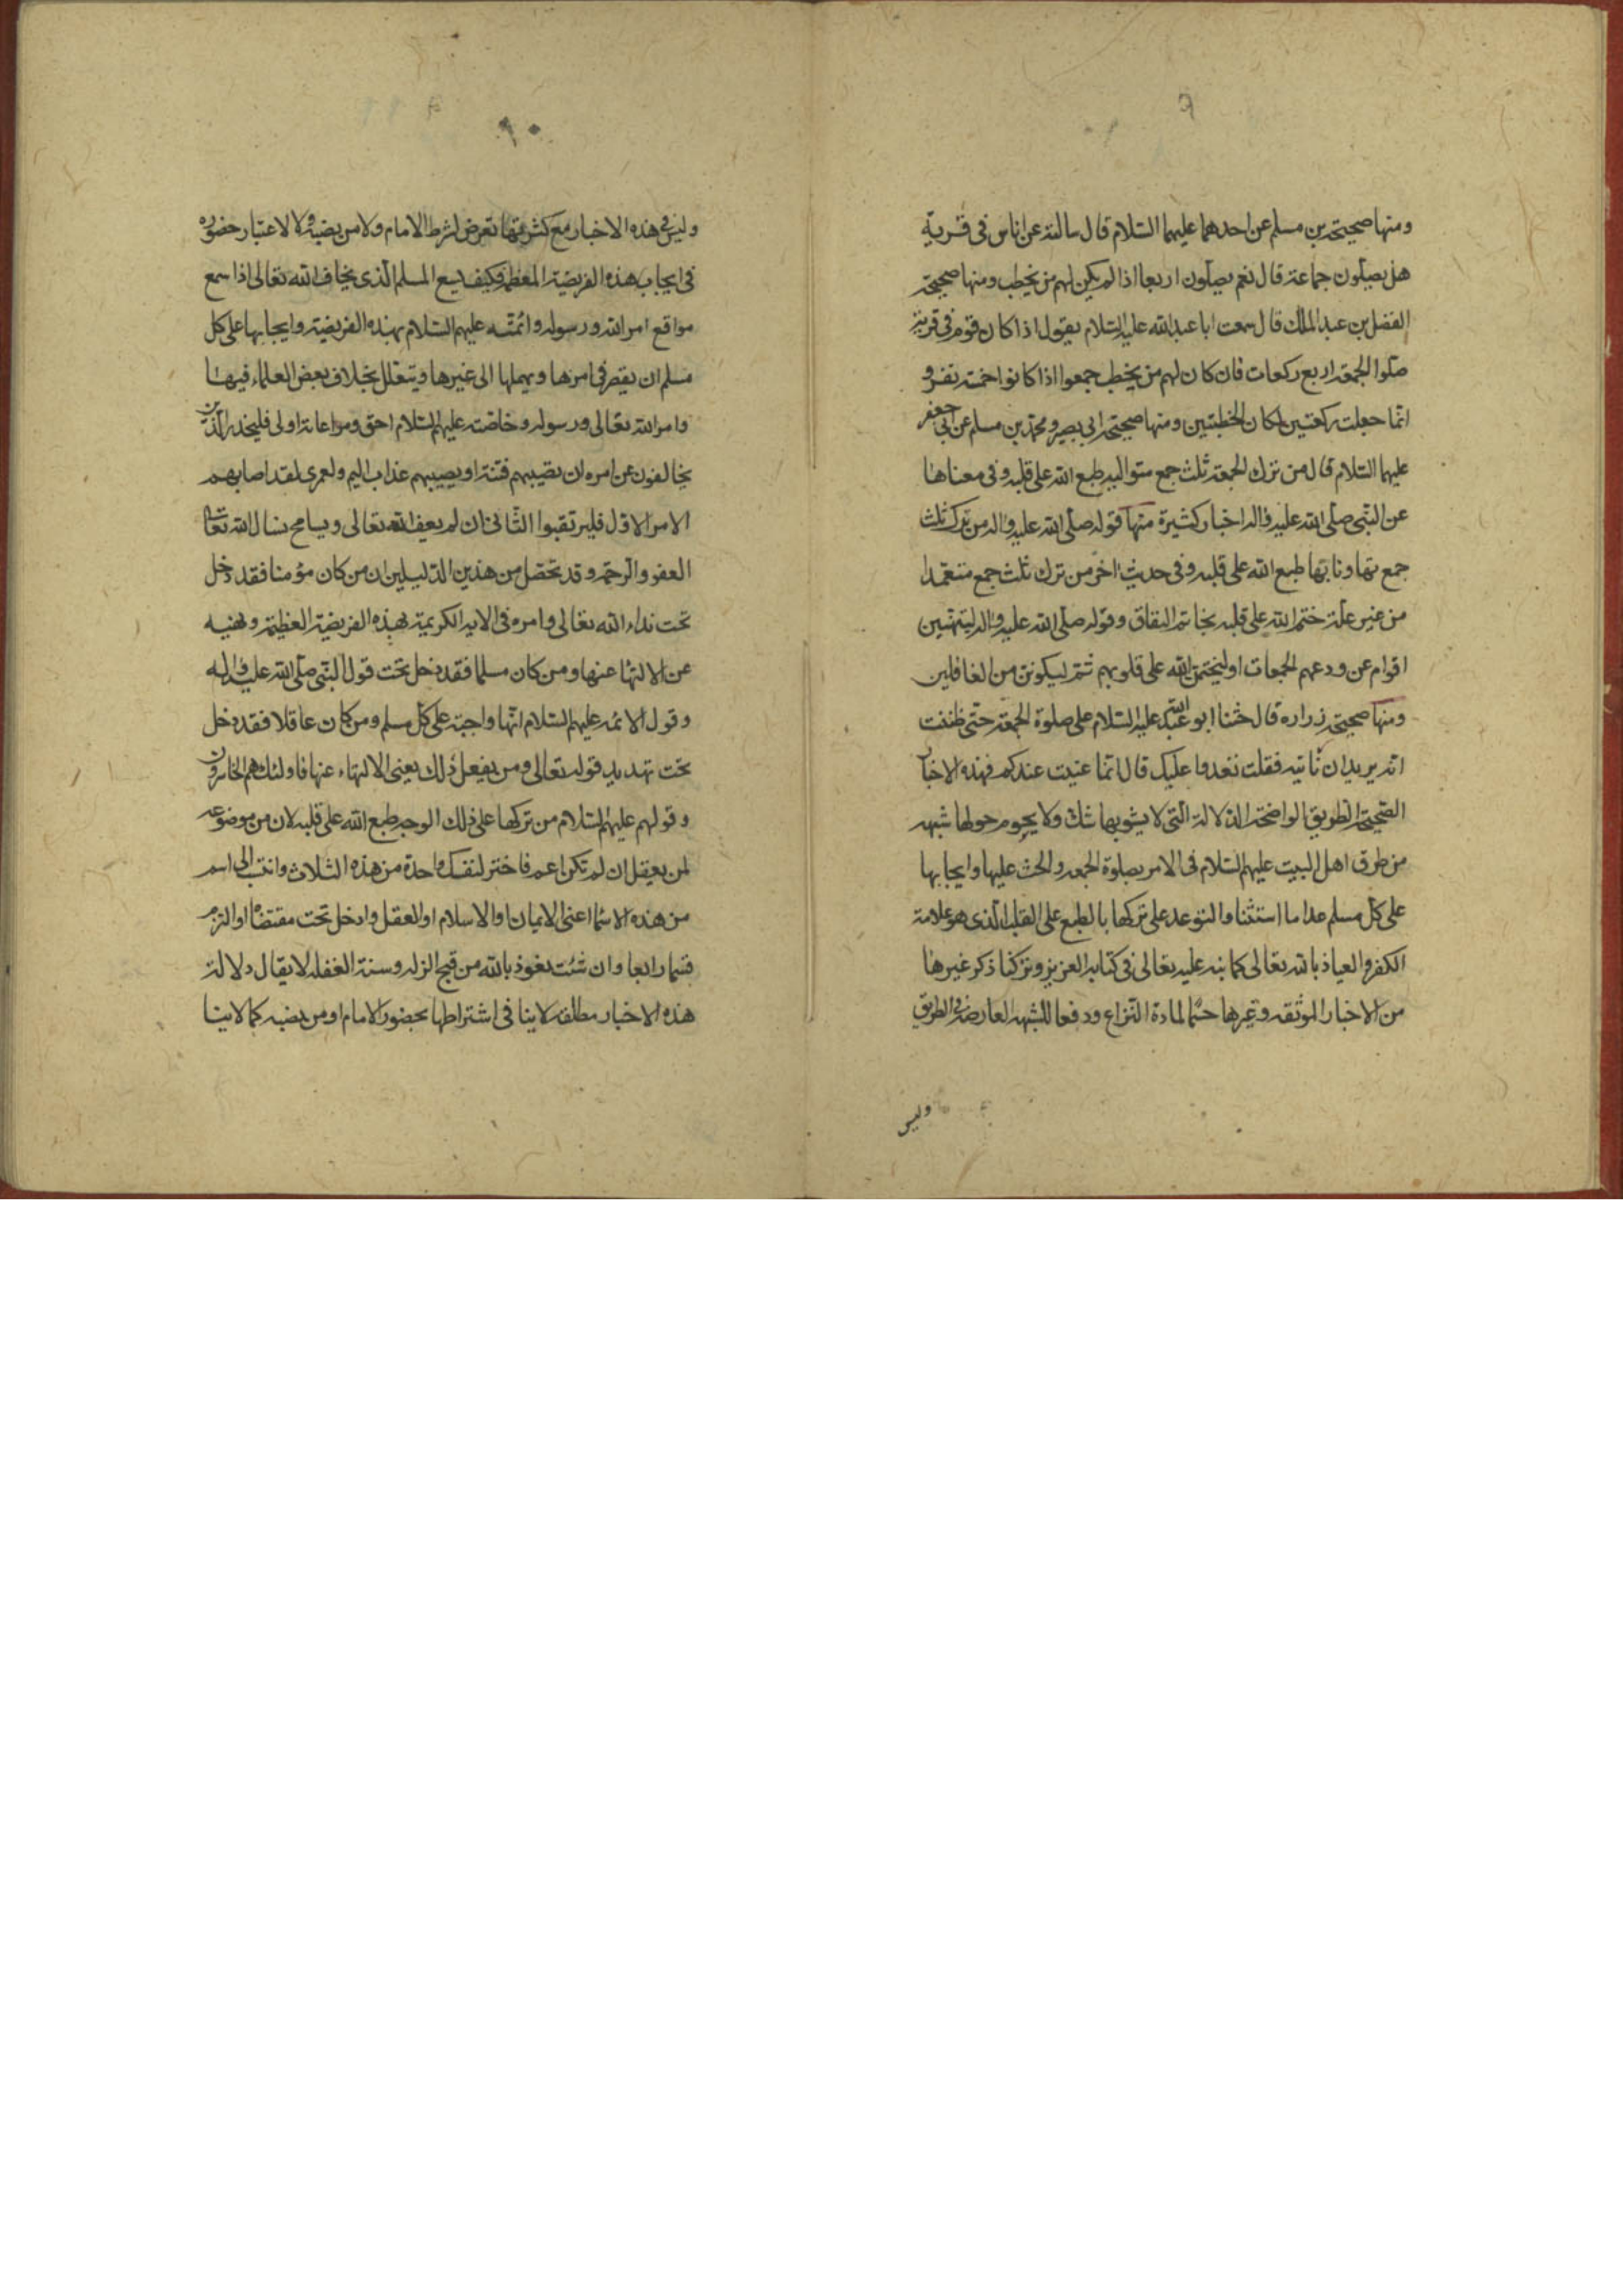 ٩
ومنها صحيحة محمد بن مسلم عن احدهما عليهما السلام قال سالته عن اناس فى قرية
هل يصلون جماعة قال نعم يصلون اربعا اذا لم يكن لهم من يخطب ومنها صحيحة
الفضل بن عبد الملك قال سمعت ابا عبد الله عليه السلام يقول اذا كان قوم فى قرية
صلوا الجمعة اربع ركعات فان كان لهم من يخطب جمعوا اذا كانوا خمسة نفر و
انما جعلت ركعتين لمكان الخطبتين ومنها صحيحة ابى بصير ومحمد بن مسلم عن ابى جعفر
عليهما السلام قال من ترك الجمعة ثلث جمع متواليه طبع الله على قلبه وفى معناها
عن النبى صلى الله عليه واله اخبار كثيرة منها قوله صلى الله عليه واله من ترك ثلث
جمع تهاونا بها طبع الله على قلبه وفى حديث اخر من ترك ثلث جمع متعمدا
من غير علة ختم الله على قلبه بخاتم النفاق وقوله صلى الله عليه واله لينتهين
اقوام عن ودعهم الجمعات او ليختمن الله على قلوبهم ثم ليكونن من الغافلين
ومنها صحيحة زراره قال حثنا ابو عبد الله عليه السلام على صلوة الجمعة حتى ظننت
انه يريد ان ناتيه فقلت نغدوا عليك قال انما عنيت عندكم فهذه الاخبار
الصحيحة الطريق الواضحة الدلالة التى لا يشوبها شك ولا يحوم حولها شبهه
من طرق اهل البيت عليهم السلام فى الامر بصلوة الجمعه والحث عليها وايجابها
على كل مسلم عدا ما استثنا والتوعد على تركها بالطبع على القلب الذى هو علامة
الكفر والعياذ بالله تعالى كما نبه عليه تعالى فى كتابه العزيز وتركنا ذكر غيرها
من الاخبار الموثقه وغيرها حسما لمادة النزاع ودفعا للشبهه العارضة فى الطريق
وليس
١٠
وليس فى هذه الاخبار مع كثرتها تعرض لشرط الامام ولا من نصبه ولا لاعتبار حضوره
فى ايجاب هذه الفريضة المعظمة فكيف يسع المسلم الذى يخاف الله تعالى اذا سمع
مواقع امر الله ورسوله وائمته عليهم السلام بهذه الفريضة وايجابها على كل
مسلم ان يقصر فى امرها ويهملها الى غيرها ويتعلل بخلاف بعض العلماء فيها
وامر الله تعالى ورسوله وخاصته عليهم السلام احق ومراعاته اولى فليحذر الذين
يخالفون عن امره ان تصيبهم فتنة او يصيبهم عذاب اليم ولعمرى لقد اصابهم
الامر الاول فليرتقبوا الثانى ان لم يعف الله تعالى ويسامح نسال الله تعالى
العفو والرحمة وقد تحصل من هذين الدليلين ان من كان مؤمنا فقد دخل
تحت نداء الله تعالى وامره فى الايه الكريمة بهذه الفريضة العظيمة ونهيه
عن الالتها عنها ومن كان مسلما فقد دخل تحت قول النبى صلى الله عليه واله
وقول الائمه عليهم السلام انها واجبة على كل مسلم ومن كان عاقلا فقد دخل
تحت تهديد قوله تعالى ومن يفعل ذلك يعنى الالتهاء عنها فاولئك هم الخاسرون
وقولهم عليهم السلام من تركها على ذلك الوجه طبع الله على قلبه لان من موضوعه
لمن يعقل ان لم تكن اعم فاختر لنفسك واحدة من هذه الثلاث وانتسب الى اسم
من هذه الاسما اعنى الايمان او الاسلام او العقل وادخل تحت مقتضاه او التزم
قسما رابعا وان شئت نعوذ بالله من قبح الزله وسنة الغفله لا يقال دلالة
هذه الاخبار مطلقه لا ينافى اشتراطها بحضور الامام او من نصبه كما لا ينا